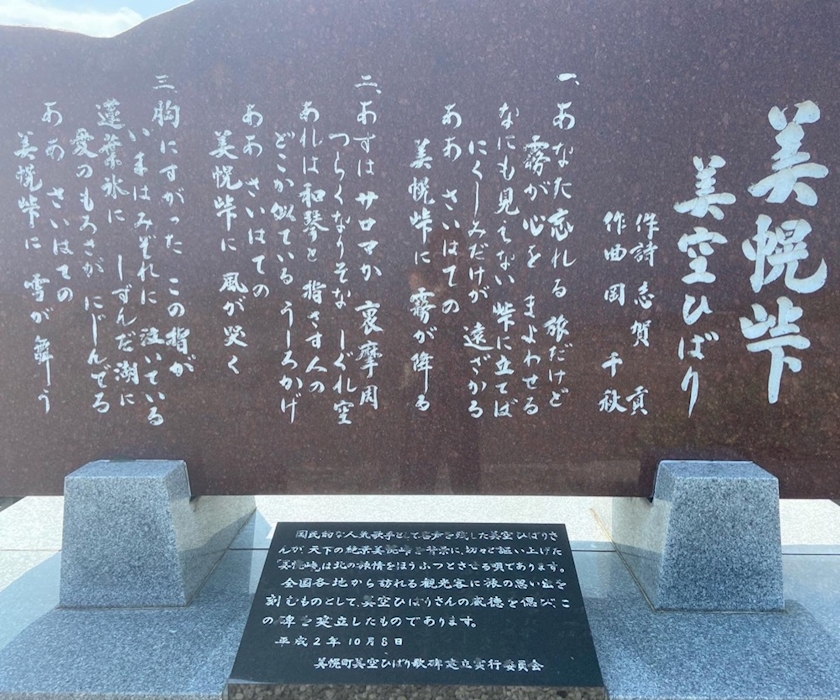 美幌峠
美空ひばり
作詩 志賀 貢
作曲 岡 千秋
一、あなた忘れる 旅だけど
霧が心を まよわせる
なにも見えない 峠に立てば
にくしみだけが 遠ざかる
ああ さいはての
美幌峠に 霧が降る
二、あすは サロマか 裏摩周
つらくなりそな しぐれ空
あれは和琴と 指さす人の
どこか似ている うしろかげ
ああ さいはての
美幌峠に 風が哭く
三、胸にすがった この指が
いまはみぞれに 泣いている
蓮葉氷に しずんだ湖に
愛のもろさが にじんでる
ああ さいはての
美幌峠に 雪が舞う
国民的な人気歌手として名声を残した美空ひばりさ
んが、天下の絶景美幌峠を背景に、切々と謳い上げた
「美幌峠」は北の旅情をほうふつとさせる唄であります。
全国各地から訪れる観光客に旅の思い出を
刻むものとして、美空ひばりさんの威徳を偲び、こ
の碑を建立したものであります。
平成2年10月8日
美幌町美空ひばり歌碑建立実行委員会